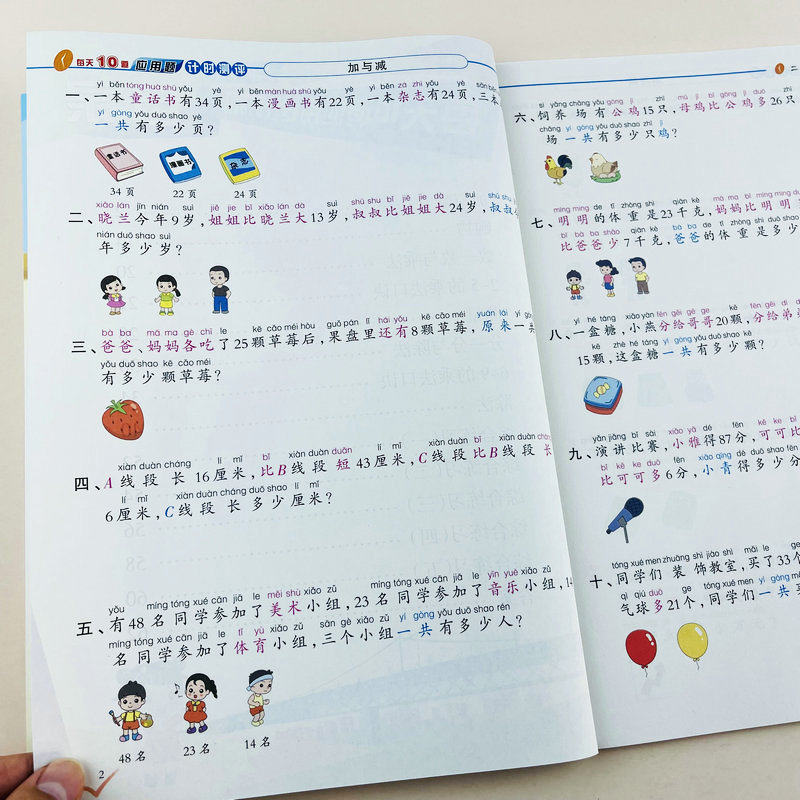 每天10道 应用题 计时测评 加与减
yì běn tóng huà shū yǒu yè yì běn màn huà shū yǒu yè yì běn zá zhì yǒu yè sān běn
一、一本童话书有34页,一本漫画书有22页,一本杂志有24页,三本
yí gòng yǒu duō shao yè
一共有多少页?
童话书 漫画书 杂志
34页 22页 24页
xiǎo lán jīn nián suì jiě jie bǐ xiǎo lán dà suì shū shu bǐ jiě jie dà suì shū shu
二、晓兰今年9岁,姐姐比晓兰大13岁,叔叔比姐姐大24岁,叔叔
nián duō shao suì
年多少岁?
bà ba mā ma gè chī le kē cǎo méi hòu guǒ pán lǐ hái yǒu kē cǎo méi yuán lái yí gòng
三、爸爸、妈妈各吃了25颗草莓后,果盘里还有8颗草莓,原来一共
yǒu duō shao kē cǎo méi
有多少颗草莓?
xiàn duàn cháng lí mǐ bǐ xiàn duàn duǎn lí mǐ xiàn duàn bǐ xiàn duàn cháng
四、A线段长16厘米,比B线段短43厘米,C线段比B线段长
lí mǐ xiàn duàn cháng duō shao lí mǐ
6厘米,C线段长多少厘米?
yǒu míng tóng xué cān jiā le měi shù xiǎo zǔ míng tóng xué cān jiā le yīn yuè xiǎo zǔ
五、有48名同学参加了美术小组,23名同学参加了音乐小组,14
míng tóng xué cān jiā le tǐ yù xiǎo zǔ sān gè xiǎo zǔ yí gòng yǒu duō shao rén
名同学参加了体育小组,三个小组一共有多少人?
48名 23名 14名
2
二
sì yǎng chǎng yǒu gōng jī zhī mǔ jī bǐ gōng jī duō zhī
六、饲养场有公鸡15只,母鸡比公鸡多26只
chǎng yí gòng yǒu duō shao zhī jī
场一共有多少只鸡?
míng ming de tǐ zhòng shì qiān kè mā ma bǐ míng ming duō
七、明明的体重是23千克,妈妈比明明
bǐ bà ba shǎo qiān kè bà ba de tǐ zhòng shì duō shao
比爸爸少7千克,爸爸的体重是多少
yì hé táng xiǎo yàn fēn gěi gē ge kē fēn gěi dì di
八、一盒糖,小燕分给哥哥20颗,分给弟弟
kē zhè hé táng yí gòng yǒu duō shao kē
15颗,这盒糖一共有多少颗?
yǎn jiǎng bǐ sài xiǎo yǎ dé fēn kě ke bǐ
九、演讲比赛,小雅得87分,可可比
bǐ kě ke duō fēn xiǎo qīng dé duō shao fēn
比可可多6分,小青得多少分
tóng xué men zhuāng shì jiào shì mǎi le ge
十、同学们装饰教室,买了33个
qì qiú duō ge tóng xué men yí gòng mǎi
气球多21个,同学们一共买